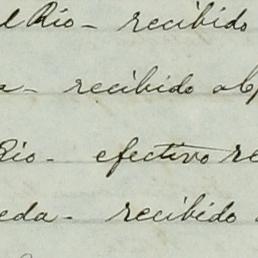 el Rio - recibido
a - recibido
Rio - efectivo re
eda - recibido